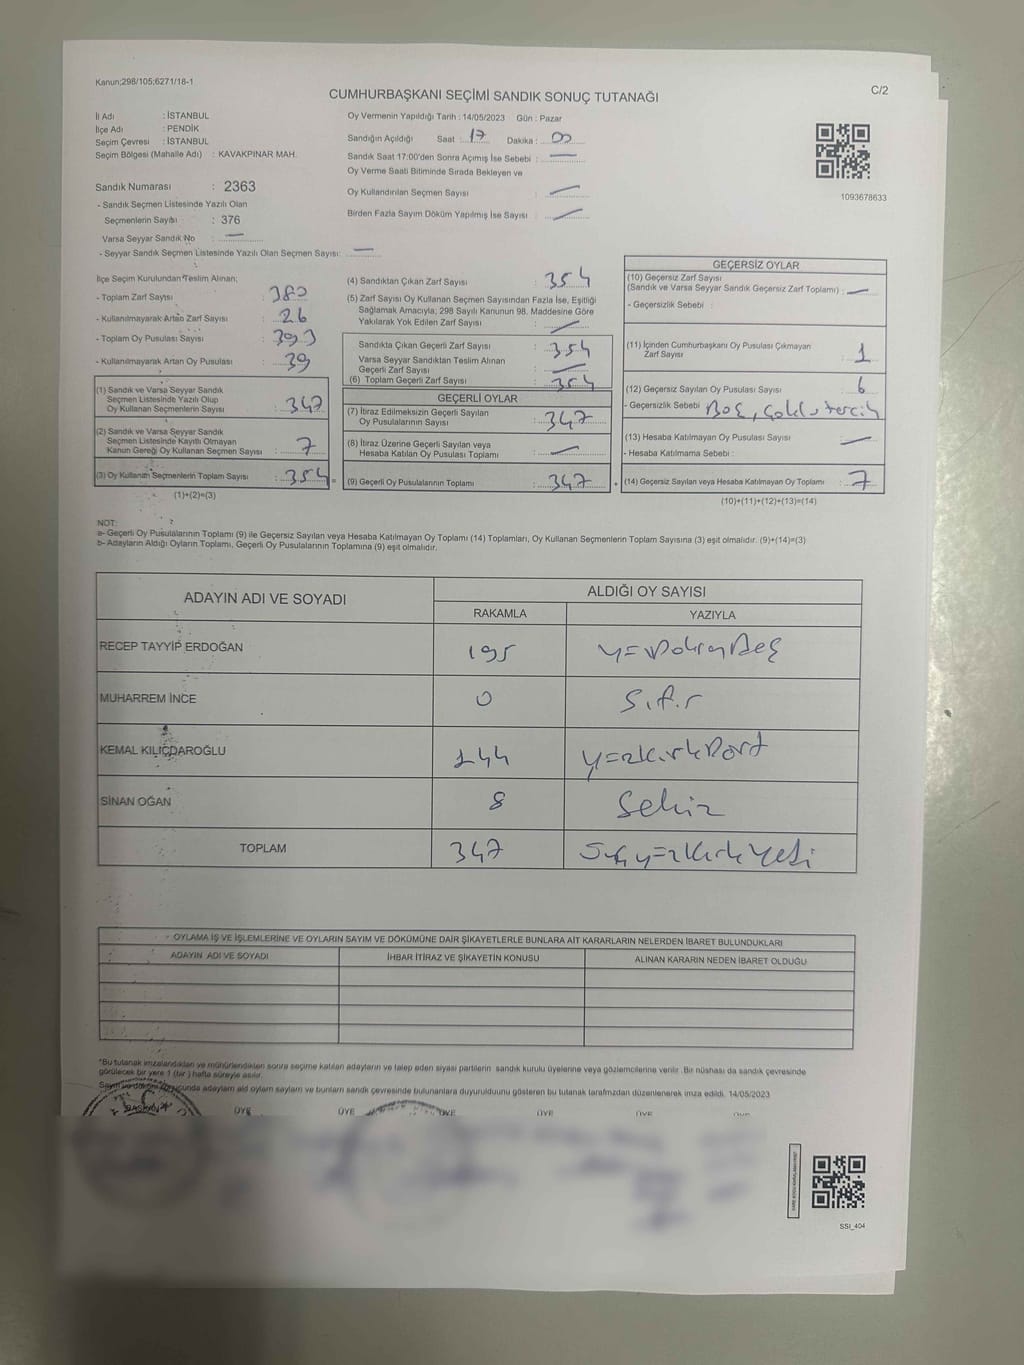 Kanun;298/105;6271/18-1
C/2
CUMHURBAŞKANI SEÇİMİ SANDIK SONUÇ TUTANAĞI
İl Adı : İSTANBUL
İlçe Adı : PENDİK
Seçim Çevresi : İSTANBUL
Seçim Bölgesi (Mahalle Adı) : KAVAKPINAR MAH.
Sandık Numarası : 2363
- Sandık Seçmen Listesinde Yazılı Olan
Seçmenlerin Sayısı : 376
Varsa Seyyar Sandık No : —
- Seyyar Sandık Seçmen Listesinde Yazılı Olan Seçmen Sayısı: —
Oy Vermenin Yapıldığı Tarih : 14/05/2023 Gün : Pazar
Sandığın Açıldığı Saat : 17 Dakika : 00
Sandık Saat 17:00'den Sonra Açımış İse Sebebi : —
Oy Verme Saati Bitiminde Sırada Bekleyen ve
Oy Kullandırılan Seçmen Sayısı : —
Birden Fazla Sayım Döküm Yapılmış İse Sayısı : —
1093678633
İlçe Seçim Kurulundan Teslim Alınan;
- Toplam Zarf Sayısı : 380
- Kullanılmayarak Artan Zarf Sayısı : 26
- Toplam Oy Pusulası Sayısı : 393
- Kullanılmayarak Artan Oy Pusulası : 39
(1) Sandık ve Varsa Seyyar Sandık
Seçmen Listesinde Yazılı Olup
Oy Kullanan Seçmenlerin Sayısı : 347
(2) Sandık ve Varsa Seyyar Sandık
Seçmen Listesinde Kayıtlı Olmayan
Kanun Gereği Oy Kullanan Seçmen Sayısı : 7
(3) Oy Kullanan Seçmenlerin Toplam Sayısı : 354
(1)+(2)=(3)
(4) Sandıktan Çıkan Zarf Sayısı : 354
(5) Zarf Sayısı Oy Kullanan Seçmen Sayısından Fazla İse, Eşitliği
Sağlamak Amacıyla, 298 Sayılı Kanunun 98. Maddesine Göre
Yakılarak Yok Edilen Zarf Sayısı : —
Sandıkta Çıkan Geçerli Zarf Sayısı : 354
Varsa Seyyar Sandıktan Teslim Alınan
Geçerli Zarf Sayısı : —
(6) Toplam Geçerli Zarf Sayısı : 354
GEÇERLİ OYLAR
(7) İtiraz Edilmeksizin Geçerli Sayılan
Oy Pusulalarının Sayısı : 347
(8) İtiraz Üzerine Geçerli Sayılan veya
Hesaba Katılan Oy Pusulası Toplamı : —
(9) Geçerli Oy Pusulalarının Toplamı : 347
GEÇERSİZ OYLAR
(10) Geçersiz Zarf Sayısı
(Sandık ve Varsa Seyyar Sandık Geçersiz Zarf Toplamı) : —
- Geçersizlik Sebebi :
(11) İçinden Cumhurbaşkanı Oy Pusulası Çıkmayan
Zarf Sayısı : 1
(12) Geçersiz Sayılan Oy Pusulası Sayısı : 6
- Geçersizlik Sebebi : Boş, Çoklu tercih
(13) Hesaba Katılmayan Oy Pusulası Sayısı : —
- Hesaba Katılmama Sebebi :
(14) Geçersiz Sayılan veya Hesaba Katılmayan Oy Toplamı : 7
(10)+(11)+(12)+(13)=(14)
NOT:
a- Geçerli Oy Pusulalarının Toplamı (9) ile Geçersiz Sayılan veya Hesaba Katılmayan Oy Toplamı (14) Toplamları, Oy Kullanan Seçmenlerin Toplam Sayısına (3) eşit olmalıdır. (9)+(14)=(3)
b- Adayların Aldığı Oyların Toplamı, Geçerli Oy Pusulalarının Toplamına (9) eşit olmalıdır.
ADAYIN ADI VE SOYADI ALDIĞI OY SAYISI
RAKAMLA YAZIYLA
RECEP TAYYİP ERDOĞAN 195 yüzDoksanBeş
MUHARREM İNCE 0 Sıfır
KEMAL KILIÇDAROĞLU 144 yüzkırkDört
SİNAN OĞAN 8 Sekiz
TOPLAM 347 üçyüzkırkYedi
OYLAMA İŞ VE İŞLEMLERİNE VE OYLARIN SAYIM VE DÖKÜMÜNE DAİR ŞİKAYETLERLE BUNLARA AİT KARARLARIN NELERDEN İBARET BULUNDUKLARI
ADAYIN ADI VE SOYADI İHBAR İTİRAZ VE ŞİKAYETİN KONUSU ALINAN KARARIN NEDEN İBARET OLDUĞU
*Bu tutanak imzalandıktan ve mühürlendikten sonra seçime katılan adayların ve talep eden siyasi partilerin sandık kurulu üyelerine veya gözlemcilerine verilir. Bir nüshası da sandık çevresinde
görülecek bir yere 1 (bir) hafta süreyle asılır.
adayların ald oyların sayların ve bunların sandık çevresinde bulunanlara duyurulduunu gösteren bu tutanak tarafmzdan düzenlenerek imza edildi. 14/05/2023
BAŞKAN ÜYE ÜYE ÜYE ÜYE ÜYE
SSI_404